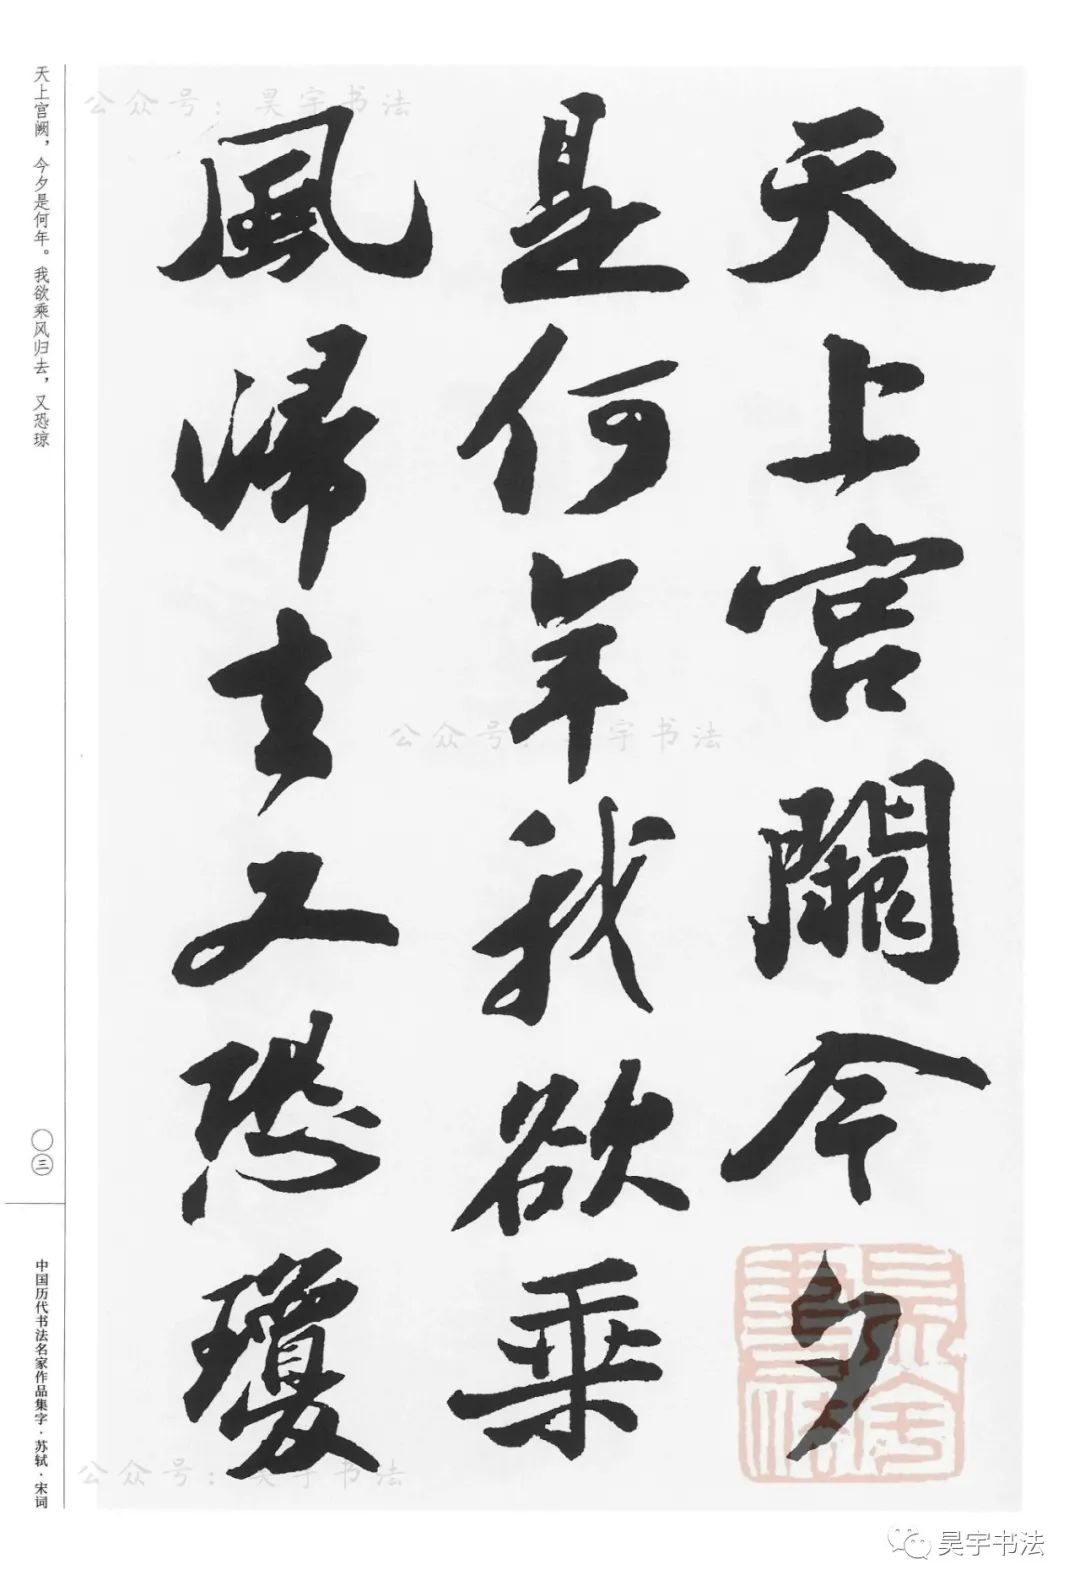 天上宮闕今夕
是何年我欲乘
風歸去又恐瓊
天上宫阙，今夕是何年。我欲乘风归去，又恐琼
〇三
中国历代书法名家作品集字·苏轼·宋词
公众号：昊宇书法
公众号：昊宇书法
公众号：昊宇书法
昊宇书法
昊宇书法